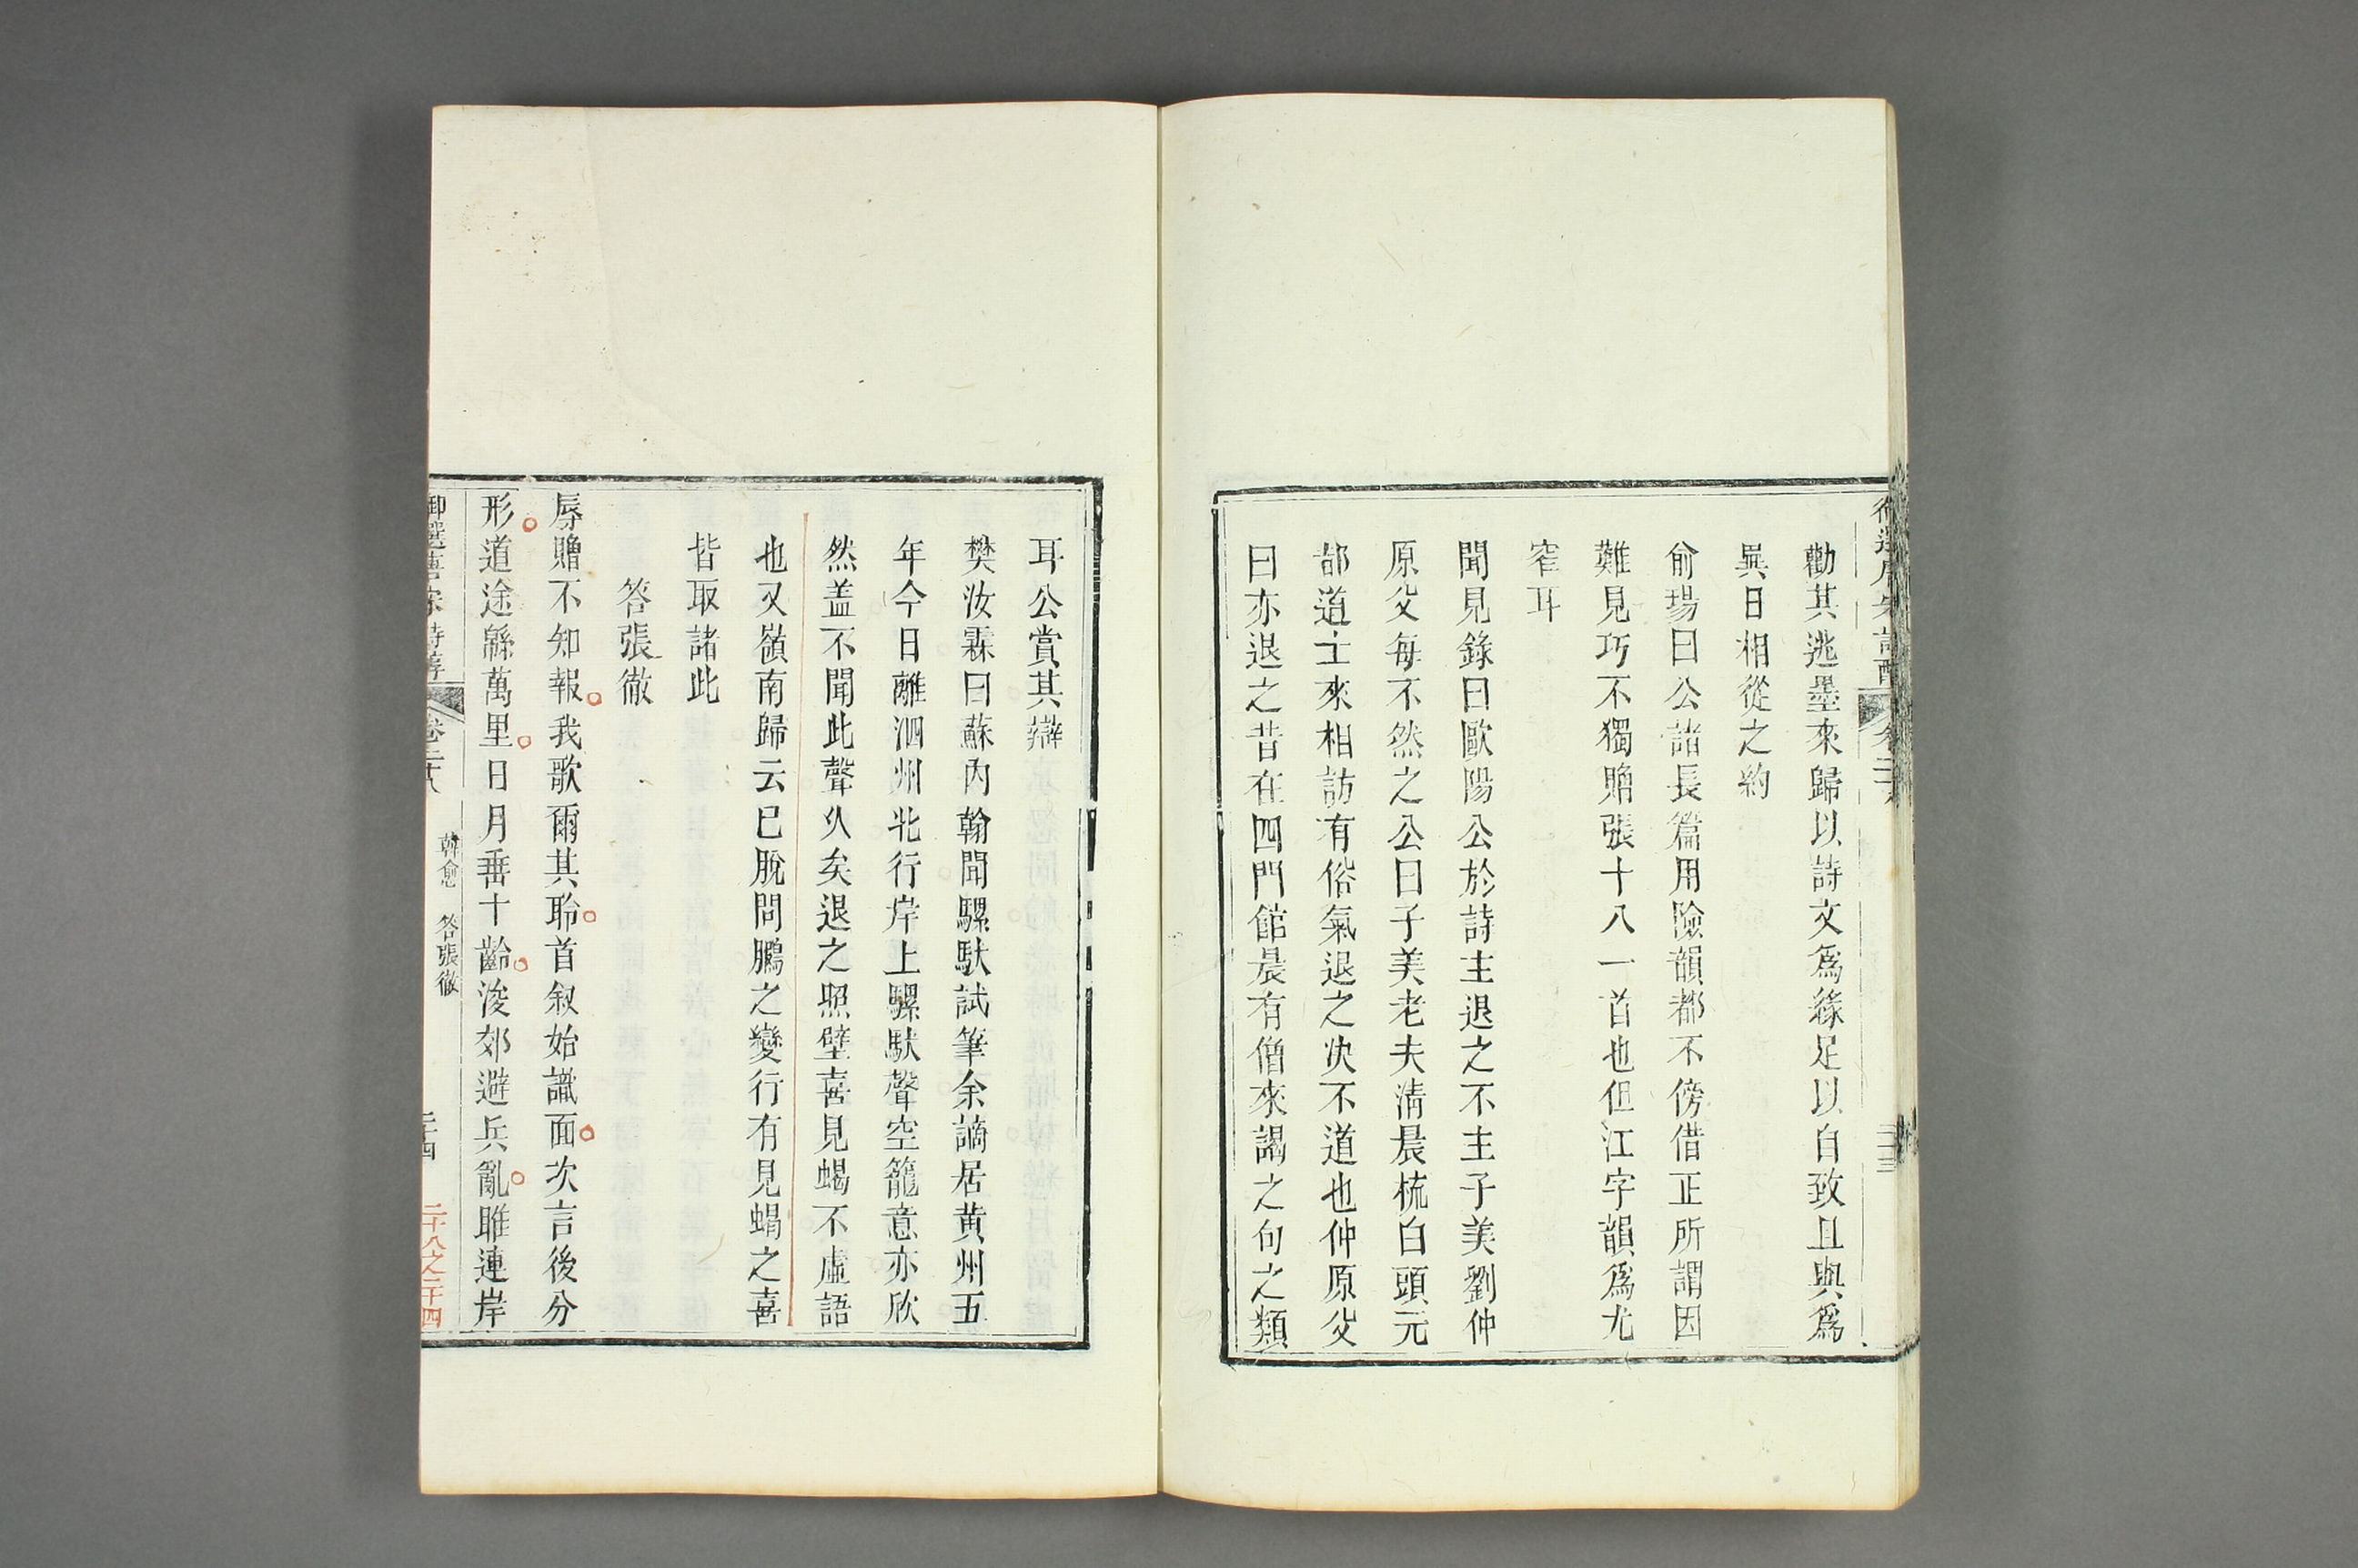 勸其逃墨來歸以詩文爲緣足以自致且與爲
異日相從之約
俞瑒曰公諸長篇用險韻都不傍借正所謂因
難見巧不獨贈張十八一首也但江字韻爲尤
窄耳
聞見錄曰歐陽公於詩主退之不主子美劉仲
原父每不然之公曰子美老夫淸晨梳白頭元
都道士來相訪有俗氣退之决不道也仲原父
曰亦退之昔在四門館晨有僧來謁之句之類
耳公賞其辯
樊汝霖曰蘇內翰聞騾馱試筆余謫居黄州五
年今日離泗州北行岸上騾馱聲空籠意亦欣
然盖不聞此聲久矣退之照壁喜見蝎不虛語
也又嶺南歸云已脫問鵩之變行有見蝎之喜
皆取諸此
答張徹
辱贈不知報我歌爾其聆首叙始識面次言後分
形道途緜萬里日月垂十齡浚郊避兵亂睢連岸
御選唐宋詩醇
卷二十八
韓愈
答張徹
二十四
二十八之二十四